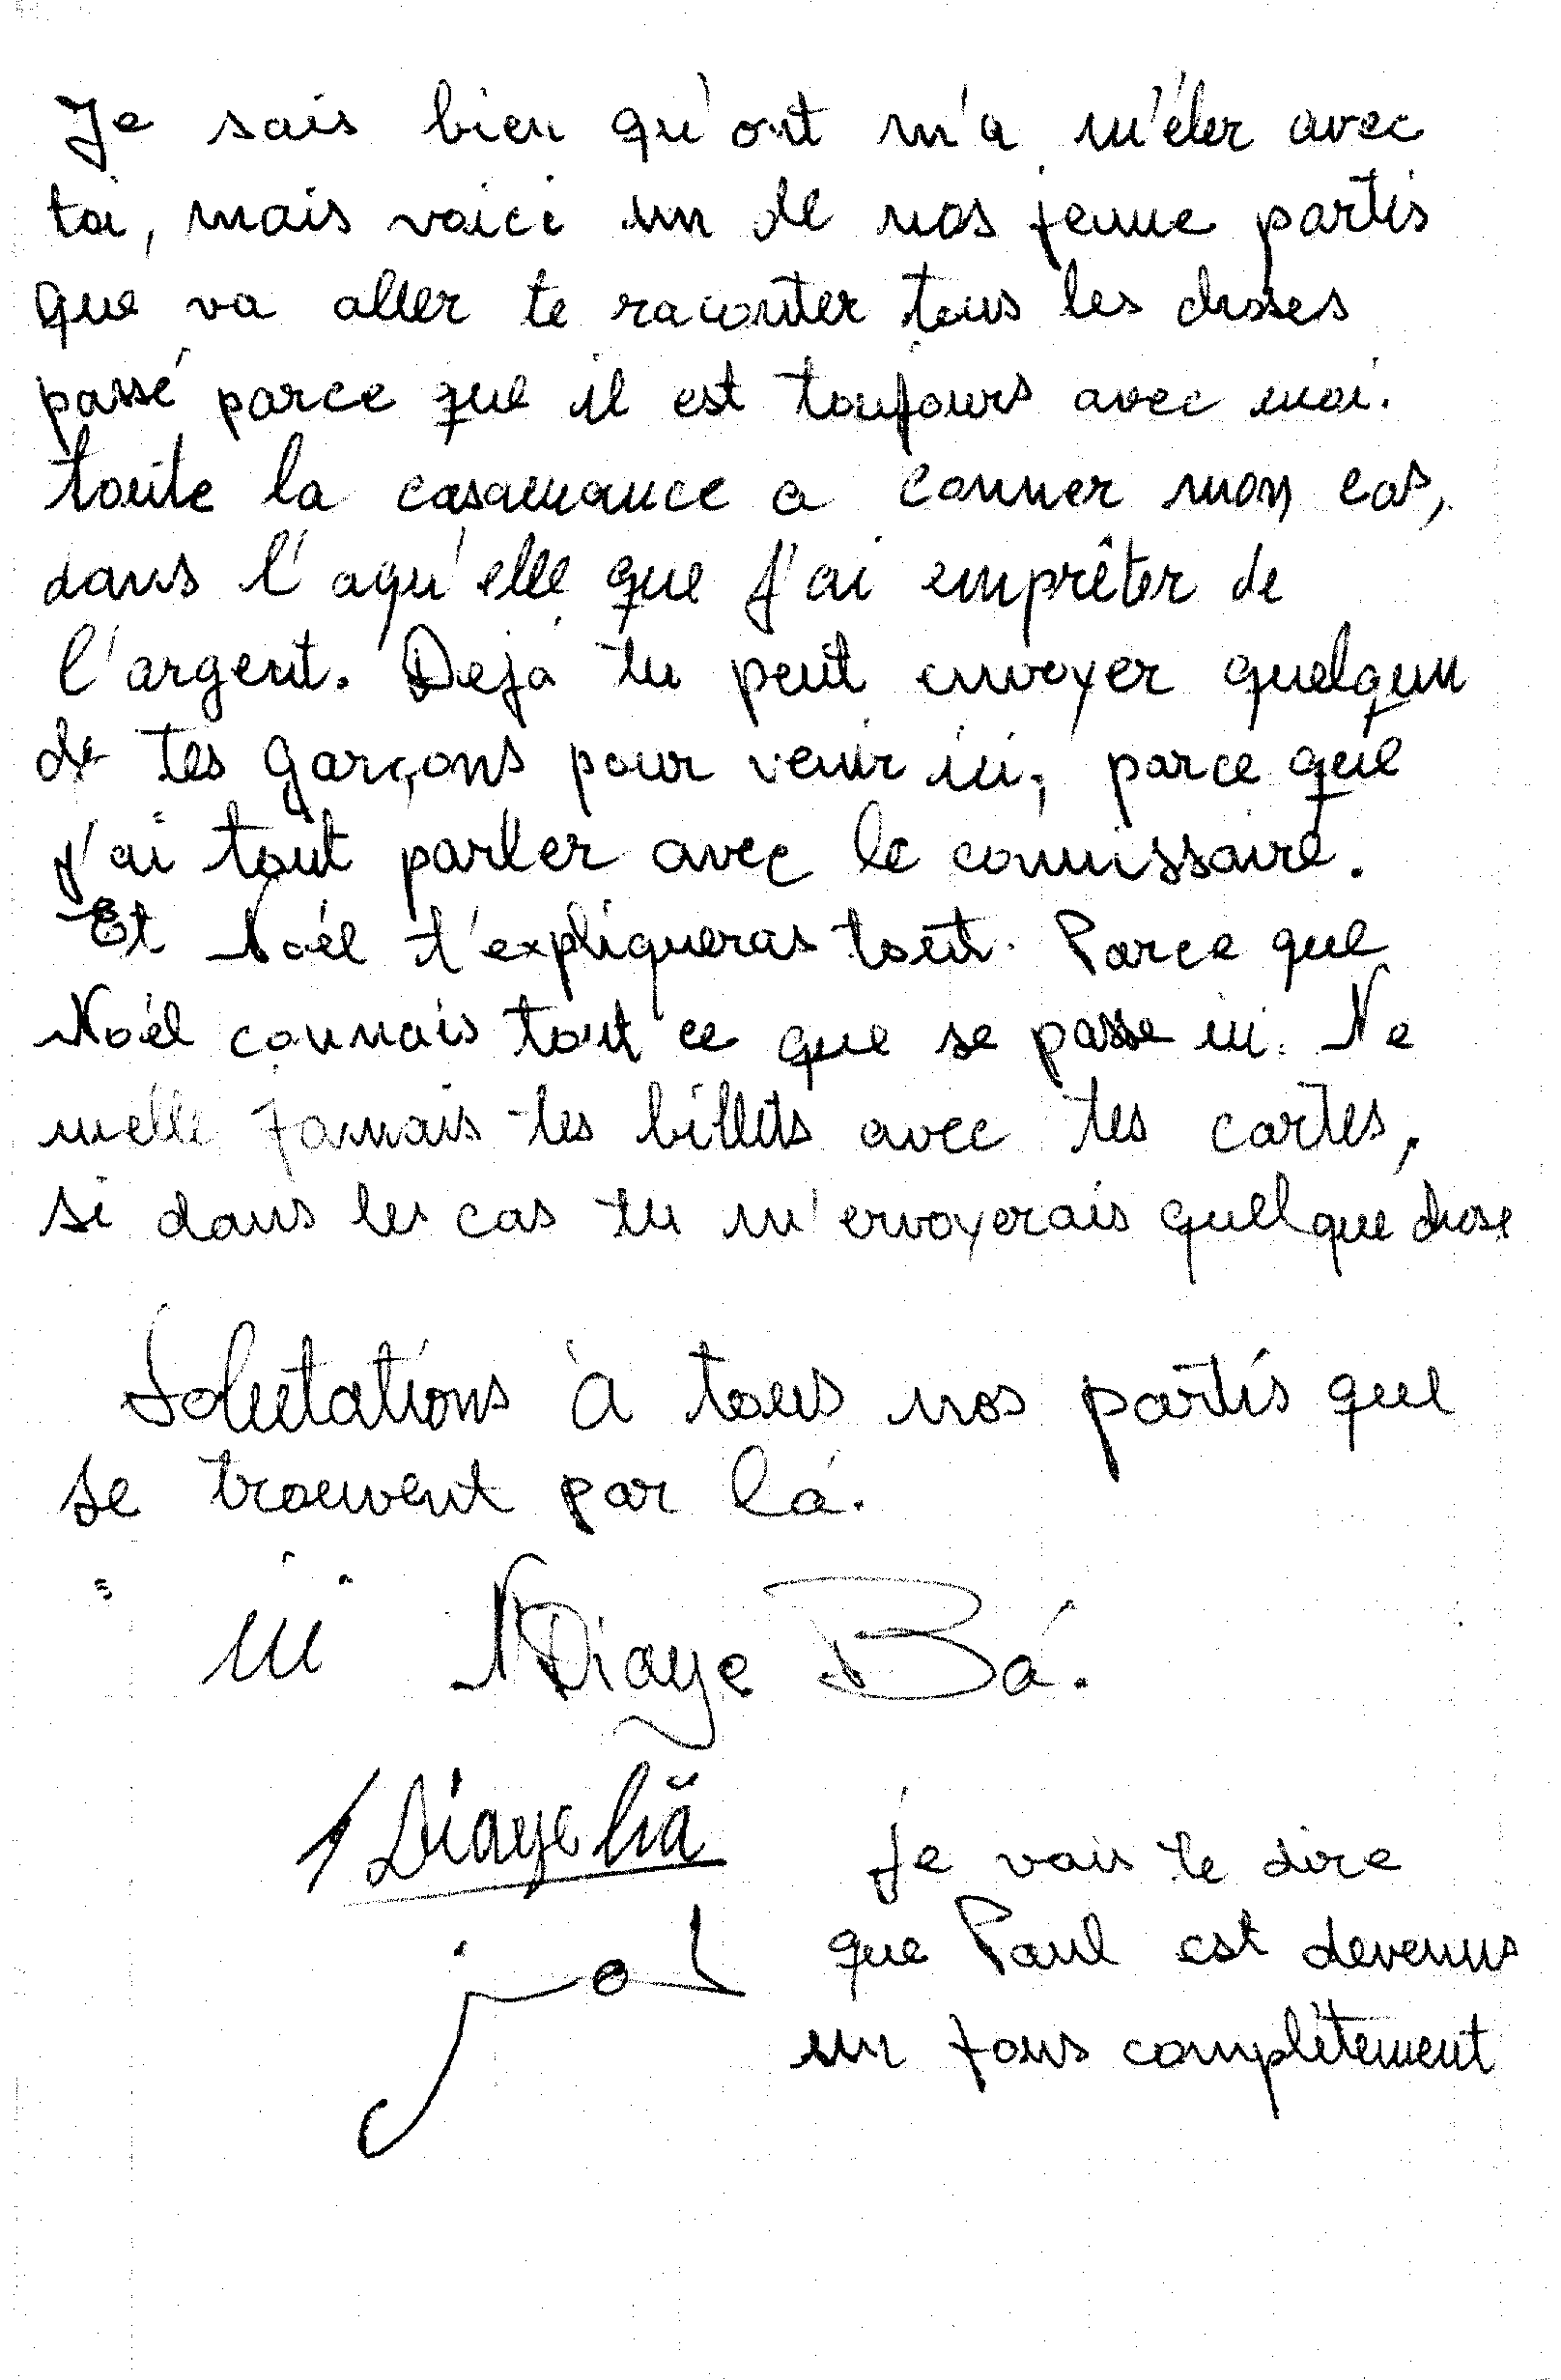 Je sais bien qu'ont m'a m'éler avec
toi, mais voici un de nos jeune partis
que va aller te raconter tous les choses
passé parce que il est toujours avec moi.
toute la casamance a conner mon cas,
dans l'aqu'elle que j'ai emprêter de
l'argent. Dejá tu peut envoyer quelqun
de tes garçons pour venir ici, parce que
j'ai tout parler avec le commissaire.
Et Noél t'expliqueras tout. Parce que
Noél connais tout ce que se passe ici. Ne
mélle jamais tes billets avec tes cartes,
si dans les cas tu m'envoyerais quelque chose
Salutations à tous nos partis que
se trouvent par lá.
ici NDiaye Bá.
NDiaye bá
je vais te dire
que Paul est devenus
un fous complètement